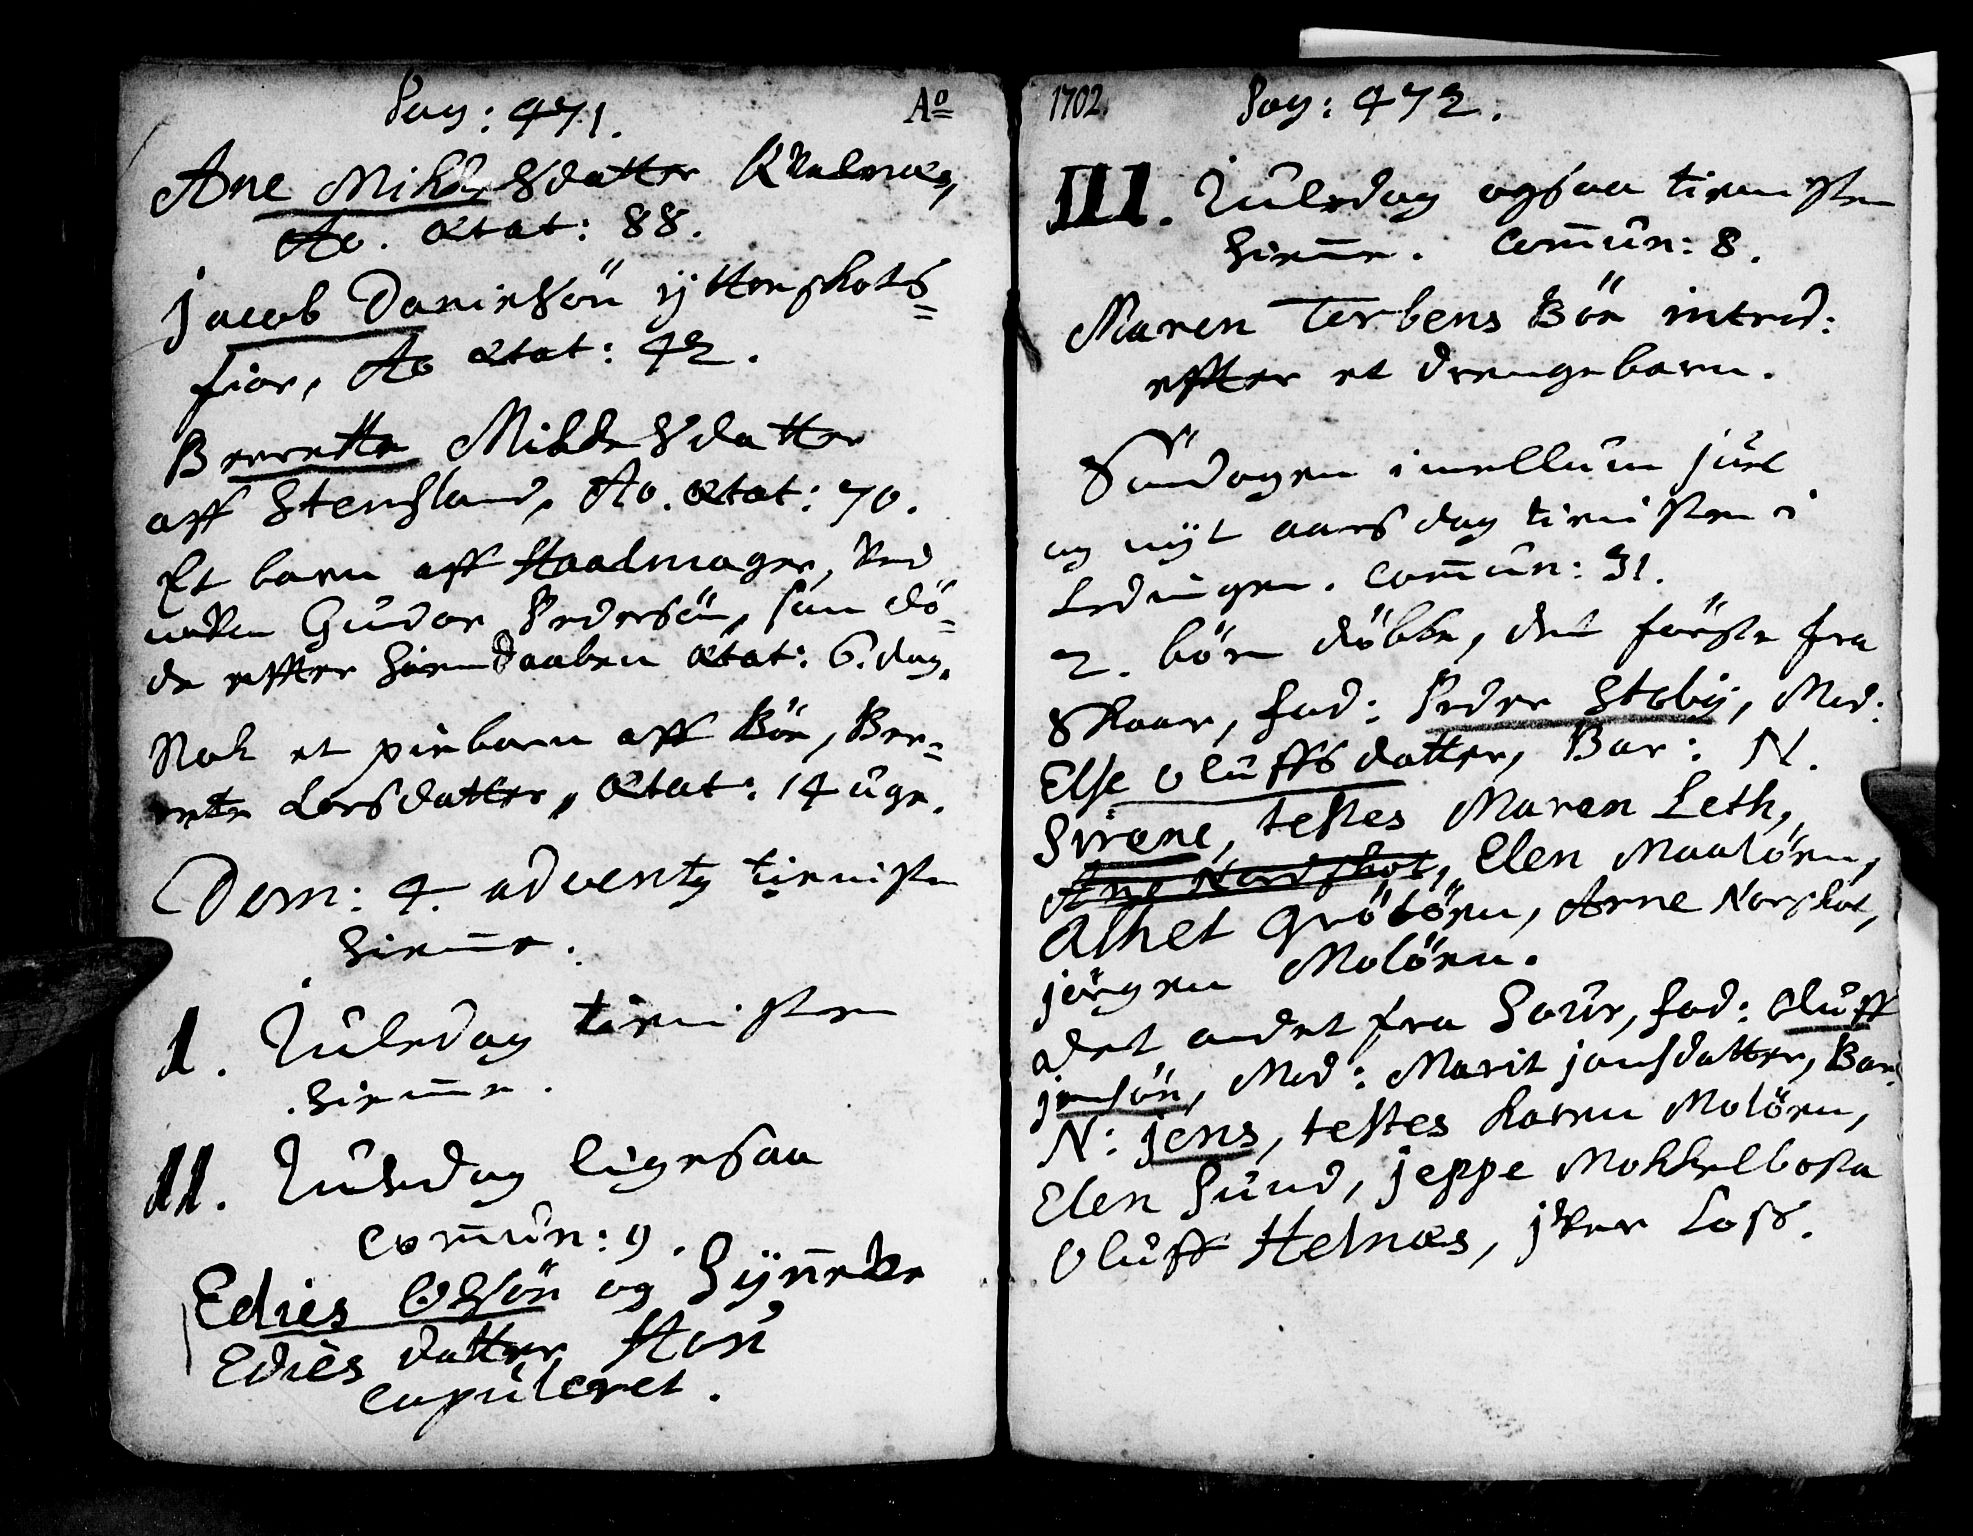 Pag: 471. Aº
Ane Mikkelsdatter
Ao. ætat: 88.
jacob Danielsön ytterskots=
fior, Ao ætat: 42.
Berrette Mikkelsdatter
aff Stensland, Ao. ætat: 70.
Et barn aff Staalmager, ved
naven Gudor Pedersön, som dö=
de effter hiemdaaben ætat: 6. dag.
Nok et pigebarn aff Bör, Ber=
rete Larsdatter, ætat: 14 uge.
Dom: 4. adventg tienisten
hieme.
I. Juledag tienisten
hieme.
II. Juledag ligesaa
Comun: 9.
Edies Olsön og Synneke
Edies datter
copuleret.
1702. Pag: 472.
III. Juledag ogsaa tienisten
hieme. Comun: 8.
Maren Torbens Bör introd:
effter et drengebarn.
Söndagen imellum juel
og nyt aarsdag tienisten i
Ledingen. Comun: 31.
2. börn döbte, det förste fra
Skaar, fad: Peder Stoby, Mod:
Else Oluffsdatter, Bar: N.
Sirene, testes Maren Leth,
Ane Nordskot, Elen Maalörn,
Alhet Grötörn, Arne Norskot,
jörgen Molörn.
Det andet fra Saur, fad: Oluff
jensön, Mod: Marit jonsdatter, Bar:
N: jens, testes Karen Molörn,
Elen Sund, jeppe Mokkelbosta
Oluff Helnæs, jver Loss.